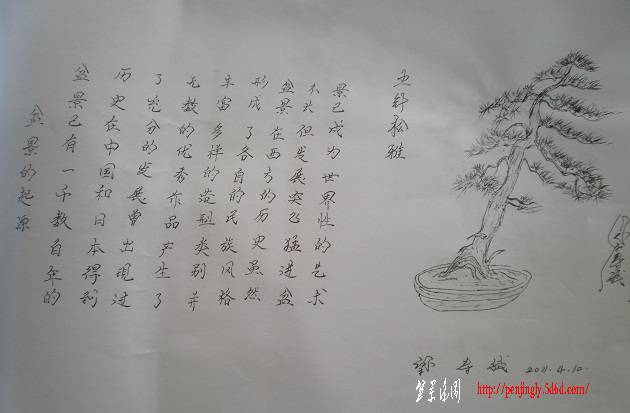 盆景的起源
盆景已有一千数百年的
历史在中国和日本得到
了充分的发展曾出现过
无数的优秀作品产生了
丰富多祥的造型类别并
形成了各自的民族风格
盆景在西方的历史虽然
不长但发展突飞猛进盆
景已成为世界性的艺术
五针松雅
郭 2011.4.10.
盆景乐园 http://penjingly.5d6d.com/